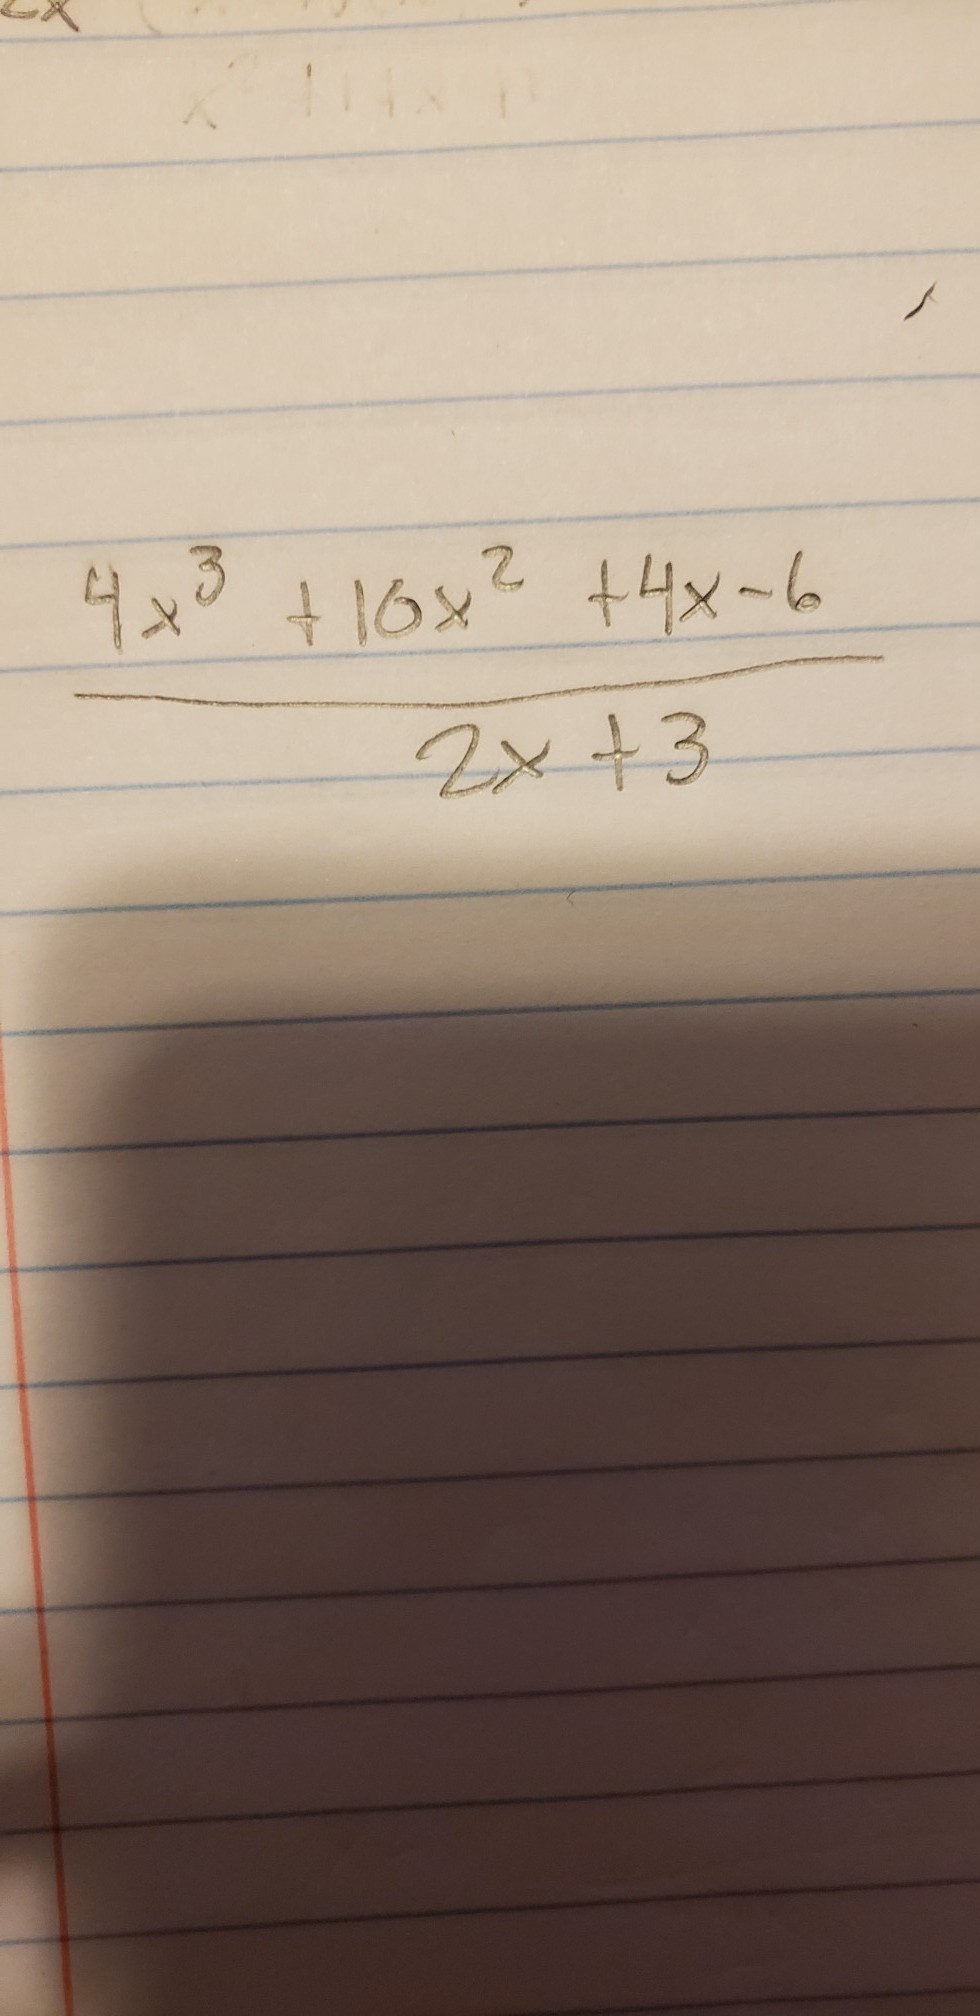 2x
4x³ +10x² +4x-6
2x+3